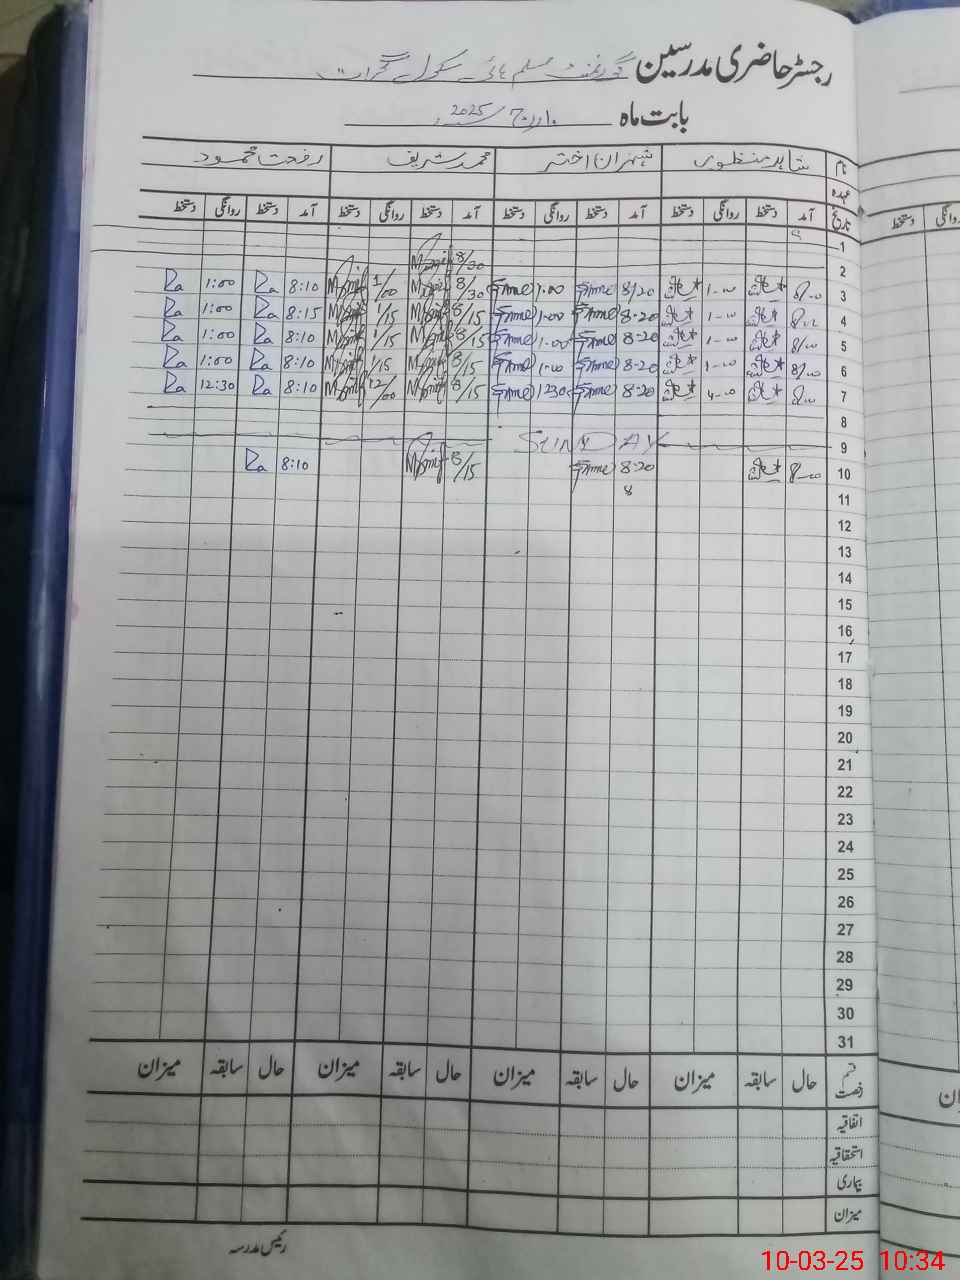 رجسٹر حاضری مدرسین گورنمنٹ مسلم ہائی سکول گجرات
بابت ماہ مارچ 2025
نام شاہد منظور شہران اختر محمد شریف رفحت محمود
عہدہ
تاریخ آمد دستخط روانگی دستخط آمد دستخط روانگی دستخط آمد دستخط روانگی دستخط آمد دستخط روانگی دستخط
1
2 8/30
3 8/00 1-00 8/20 1.00 8/30 1/00 8:10 1:00
4 1-00 8-20 1.00 8/15 1/15 8:15 1:00
5 8/00 1-00 8-20 1.00 8/15 1/15 8:10 1:00
6 8/00 1-00 8-20 1.00 8/15 1/15 8:10 1:00
7 8-20 1230 8/15 12/00 8:10 12:30
8
9 SUNDAY
10 8-00 8-20 8/15 8:10
11 8
12
13
14
15
16
17
18
19
20
21
22
23
24
25
26
27
28
29
30
31
قسم رخصت حال سابقہ میزان حال سابقہ میزان حال سابقہ میزان حال سابقہ میزان
اتفاقیہ
استحقاقیہ
بیماری
میزان
رئیس مدرسہ
10-03-25 10:34